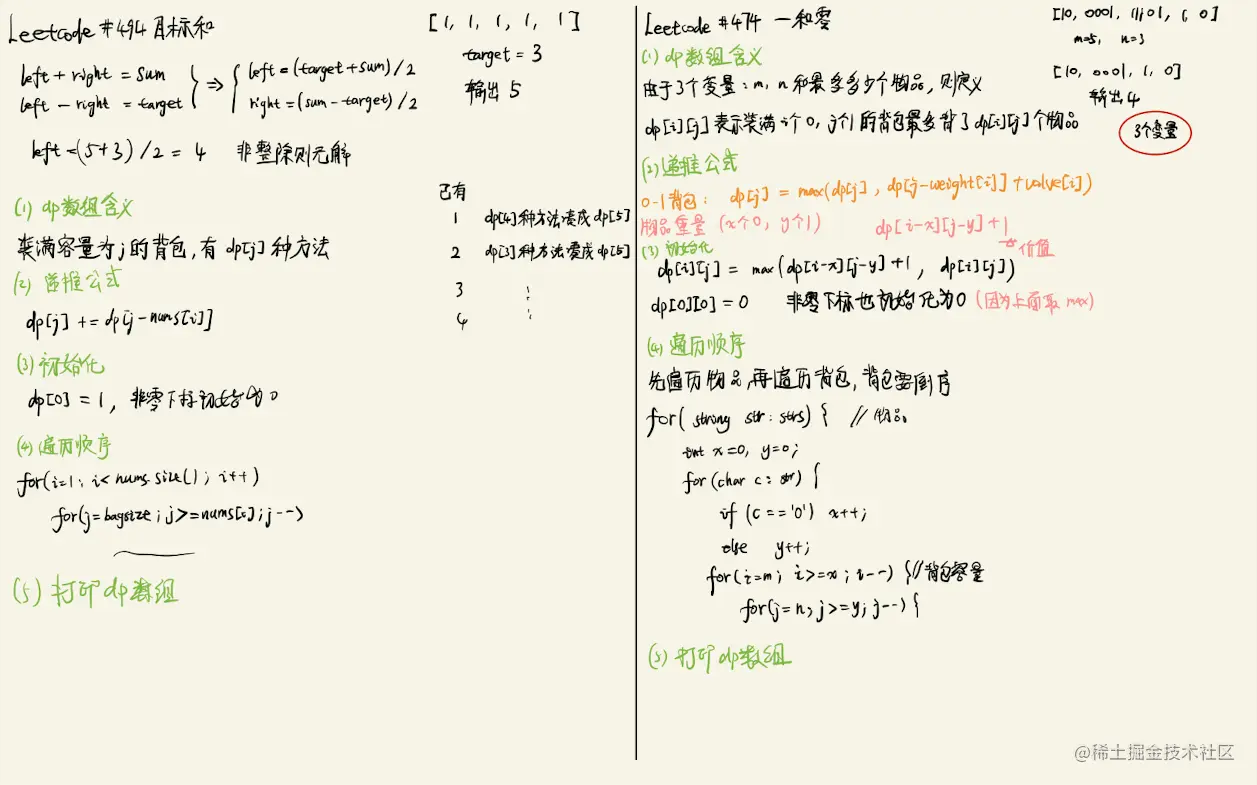 Leetcode #494 目标和
[1, 1, 1, 1, 1]
target = 3
输出 5
left + right = sum
left - right = target
⇒
left = (target + sum) / 2
right = (sum - target) / 2
left = (5+3) / 2 = 4 非整除则无解
(1) dp数组含义
装满容量为j的背包, 有 dp[j] 种方法
(2) 递推公式
dp[j] += dp[j-nums[i]]
已有
1 dp[4]种方法凑成dp[5]
2 dp[3]种方法凑成dp[5]
3 ⋮
4 ⋮
(3) 初始化
dp[0] = 1, 非零下标初始为0
(4) 遍历顺序
for(i=1; i<nums.size(); i++)
for(j=bagsize; j>=nums[i]; j--)
(5) 打印dp数组
Leetcode #474 一和零
[10, 0001, 11101, 1, 0]
m=5, n=3
[10, 0001, 1, 0]
输出4
3个变量
(1) dp数组含义
由于3个变量: m, n和最多多少个物品, 则定义
dp[i][j] 表示装满i个0, j个1的背包最多背了dp[i][j]个物品
(2) 递推公式
0-1背包: dp[j] = max(dp[j], dp[j-weight[i]] + value[i])
物品重量 (x个0, y个1) dp[i-x][j-y]+1
价值
(3) 初始化
dp[i][j] = max(dp[i-x][j-y]+1, dp[i][j])
dp[0][0] = 0 非零下标也初始化为0 (因为上面取max)
(4) 遍历顺序
先遍历物品, 再遍历背包, 背包要倒序
for( string str : strs) { // 物品
int x=0, y=0;
for (char c : str) {
if (c == '0') x++;
else y++;
for(i=m; i>=x; i--) { //背包容量
for(j=n; j>=y; j--) {
(5) 打印dp数组
@稀土掘金技术社区